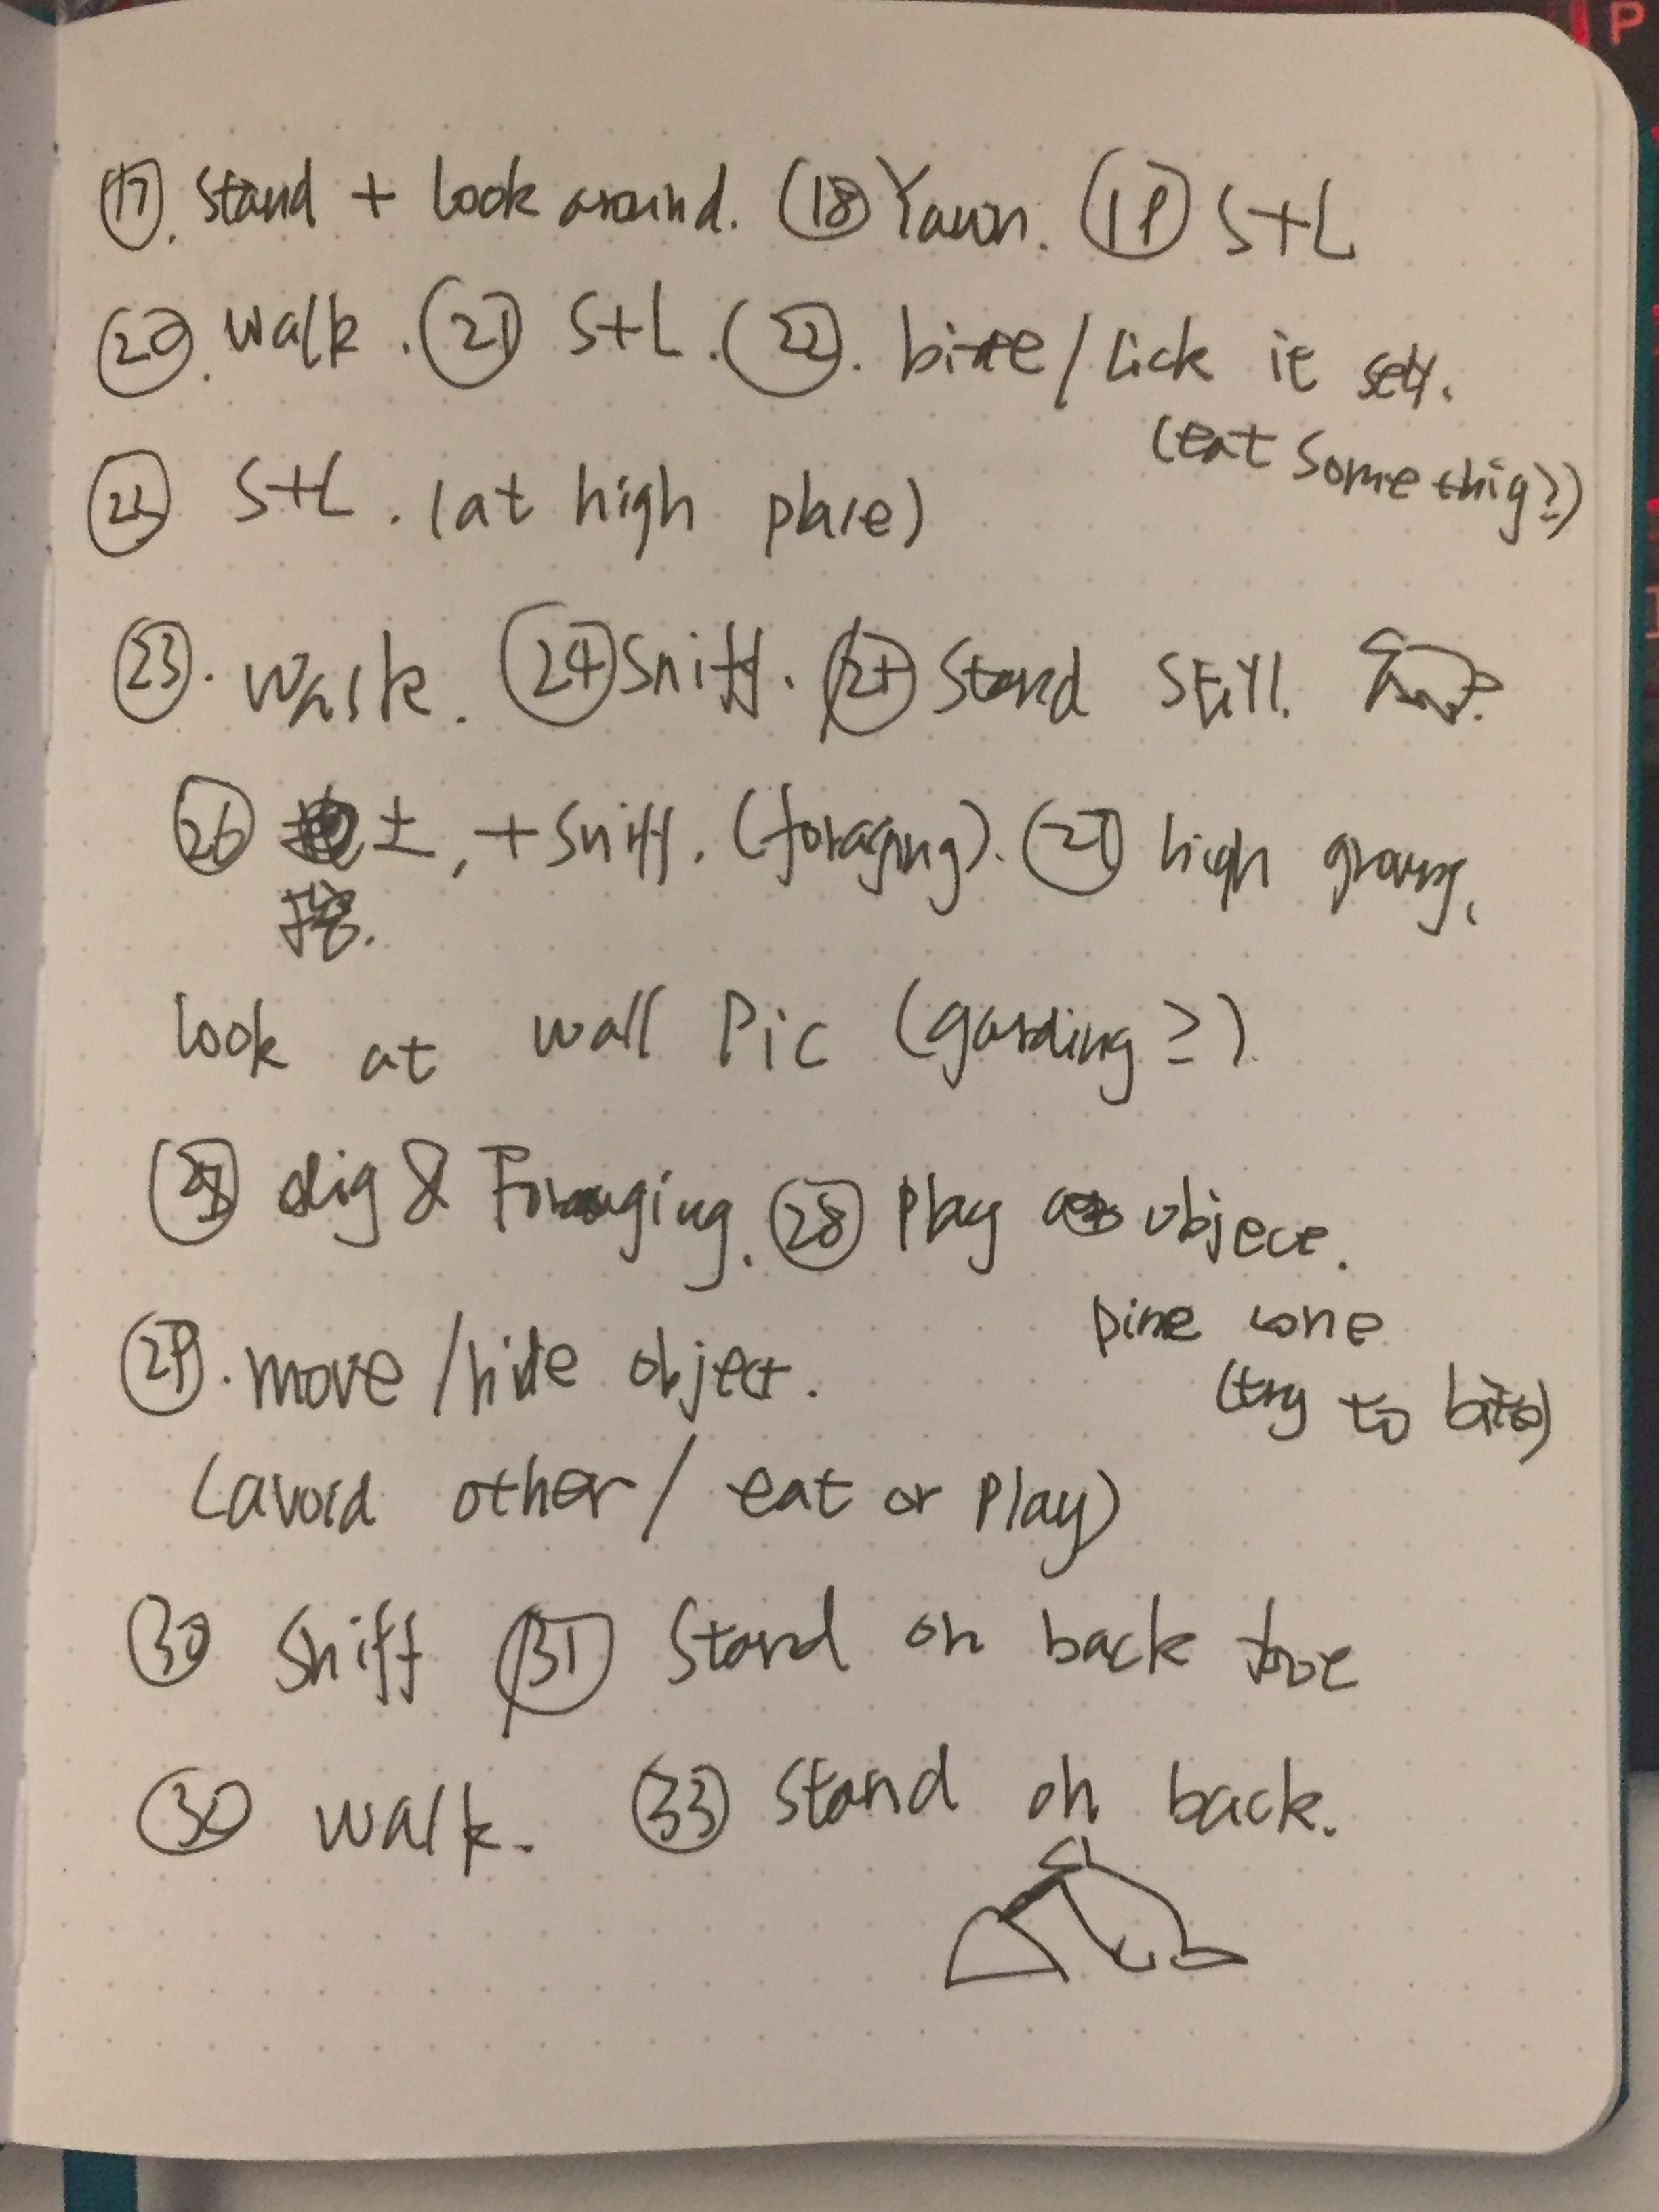 ⑰. stand + look around. ⑱ Yawn. ⑲ S+L
⑳. walk. ㉑ S+L. ㉒. bite/lick it self.
(eat somethig?)
㉒ S+L. (at high place)
㉓. walk. ㉔ Sniff. ㉕ Stand still.
㉖ 土, + sniff. (foraging). ㉗ high groung,
挖.
look at wall Pic (garding?)
㉗ dig & Foraging. ㉘ Play object.
pine cone
㉙. move / hide object.
(try to bite)
(avoid other / eat or play)
㉚ Sniff ㉛ Stand on back
㉚ walk. ㉝ stand on back.
P